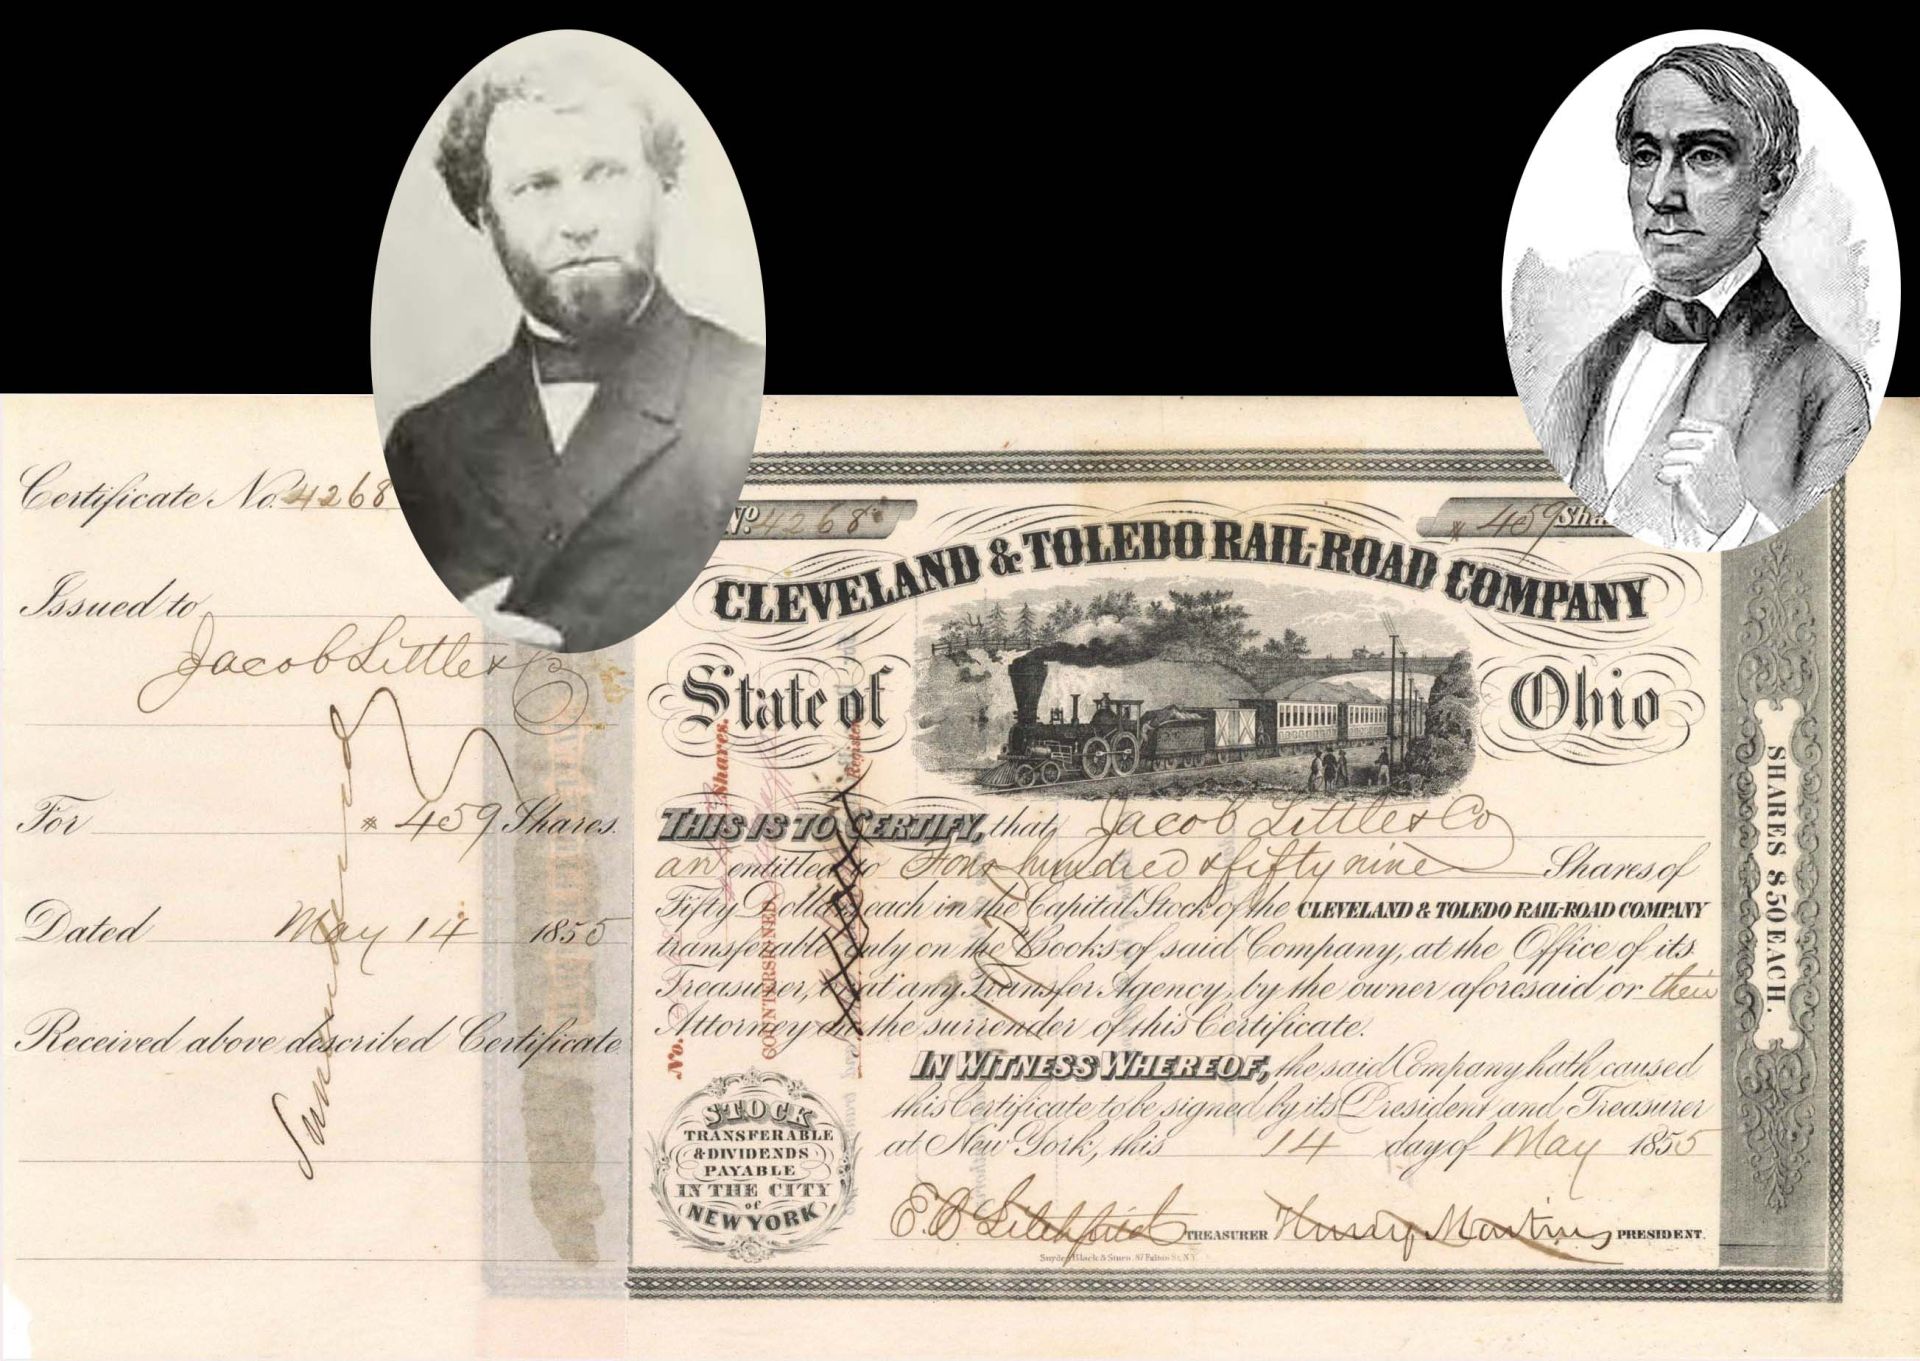 Certificate No. 4268
Issued to
Jacob Little & Co
For * 459 Shares.
Dated May 14 1855
Received above described Certificate
Surrendered
No. 4268
* 459
CLEVELAND & TOLEDO RAIL-ROAD COMPANY
State of Ohio
THIS IS TO CERTIFY, that Jacob Little & Co
are entitled to Four hundred & fifty nine Shares of
Fifty Dollars each in the Capital Stock of the CLEVELAND & TOLEDO RAIL-ROAD COMPANY
transferable only on the Books of said Company, at the Office of its
Treasurer, or at any Transfer Agency, by the owner aforesaid or their
Attorney on the surrender of this Certificate.
IN WITNESS WHEREOF, the said Company hath caused
this Certificate to be signed by its President and Treasurer
at New York, this 14 day of May 1855
E. C. Litchfield TREASURER Henry Martin PRESIDENT.
Snyder, Black & Sturn, 87 Fulton St. N.Y.
STOCK
TRANSFERABLE
& DIVIDENDS
PAYABLE
IN THE CITY
of
NEW YORK
SHARES $50 EACH.
No.
Shares.
COUNTERSIGNED
Register